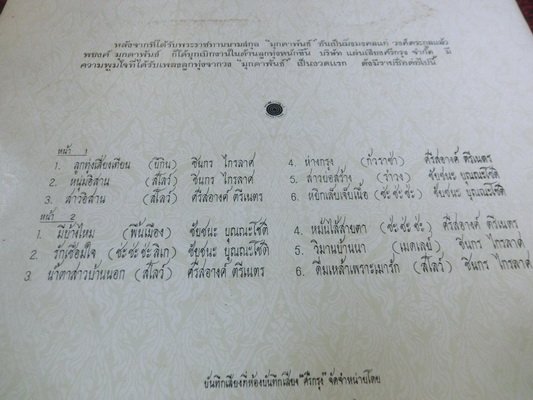 หลังจากที่ได้รับพระราชทานนามสกุล "มุกดาพันธ์" อันเป็นมิ่งมงคลแก่ วงศ์ตระกูลแล้ว
พงษ์ มุกดาพันธ์ ก็ได้บุกเบิกงานในด้านลูกทุ่งหนักขึ้น บริษัท แผ่นเสียงศรีกรุง จำกัด มี
ความภูมิใจที่ได้รับเพลงลูกทุ่งจากวง "มุกดาพันธ์" เป็นงวดแรก ดังมีรายชื่อต่อไปนี้
หน้า 1
1. ลูกทุ่งเสียงเทียน (บีกิน) ชินกร ไกรลาศ
2. หนุ่มอีสาน (สโลว์) ชินกร ไกรลาศ
3. ลาวอีสาน (สโลว์) ศรีสอางค์ ตรีเนตร
4. ห่างกรุง (กัวราช่า) ศรีสอางค์ ตรีเนตร
5. สาวยอดสร้าง (รำวง) ชัยชนะ บุญนะโชติ
6. หยิกเล็บเจ็บเนื้อ (ช่ะ ช่ะ ช่ะ) ชัยชนะ บุญณะโชติ
หน้า 2
1. มีบ้างไหม (พื้นเมือง) ชัยชนะ บุญณะโชติ
2. รักเชือมใจ (ช่ะ ช่ะ ช่ะ ลิเก) ชัยชนะ บุญณะโชติ
3. น้ำตาสาวบ้านนอก (สโลว์) ศรีสอางค์ ตรีเนตร
4. หมั่นไส้สายตา (ช่ะ ช่ะ ช่ะ) ศรีสอางค์ ตรีเนตร
5. วิมานบ้านนา (เมดเลย์) ชินกร ไกรลาศ
6. ดื่มเหล้าเพราะเมารัก (สโลว์) ชินกร ไกรลาศ
บันทึกเสียงที่ห้องบันทึกเสียง "ศรีกรุง" จัดจำหน่ายโดย